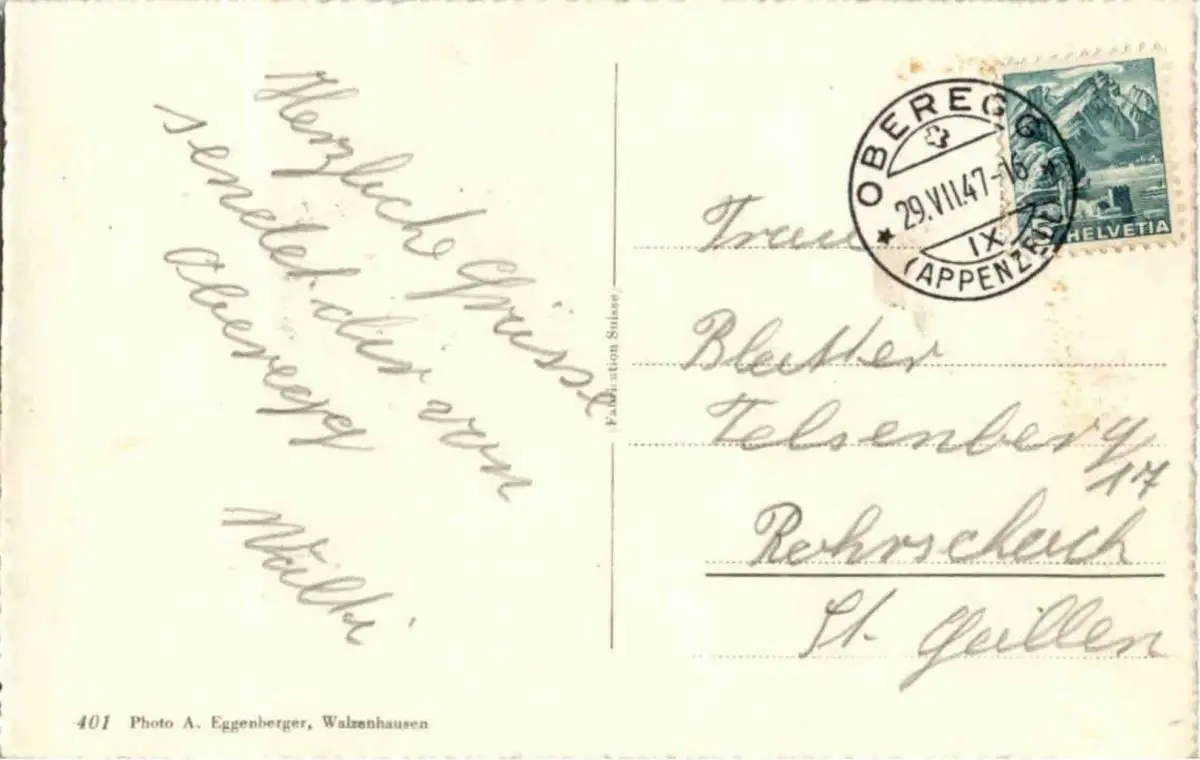 Herzliche Grüsse
sendet dir von
Oberegg
Wälti
401 Photo A. Eggenberger, Walzenhausen
Fabrication Suisse
OBEREGG
29.VII.47-16
IX
(APPENZELL)
HELVETIA
Frau
Blatter
Felsenberg
17
Rohrschach
St. Gallen